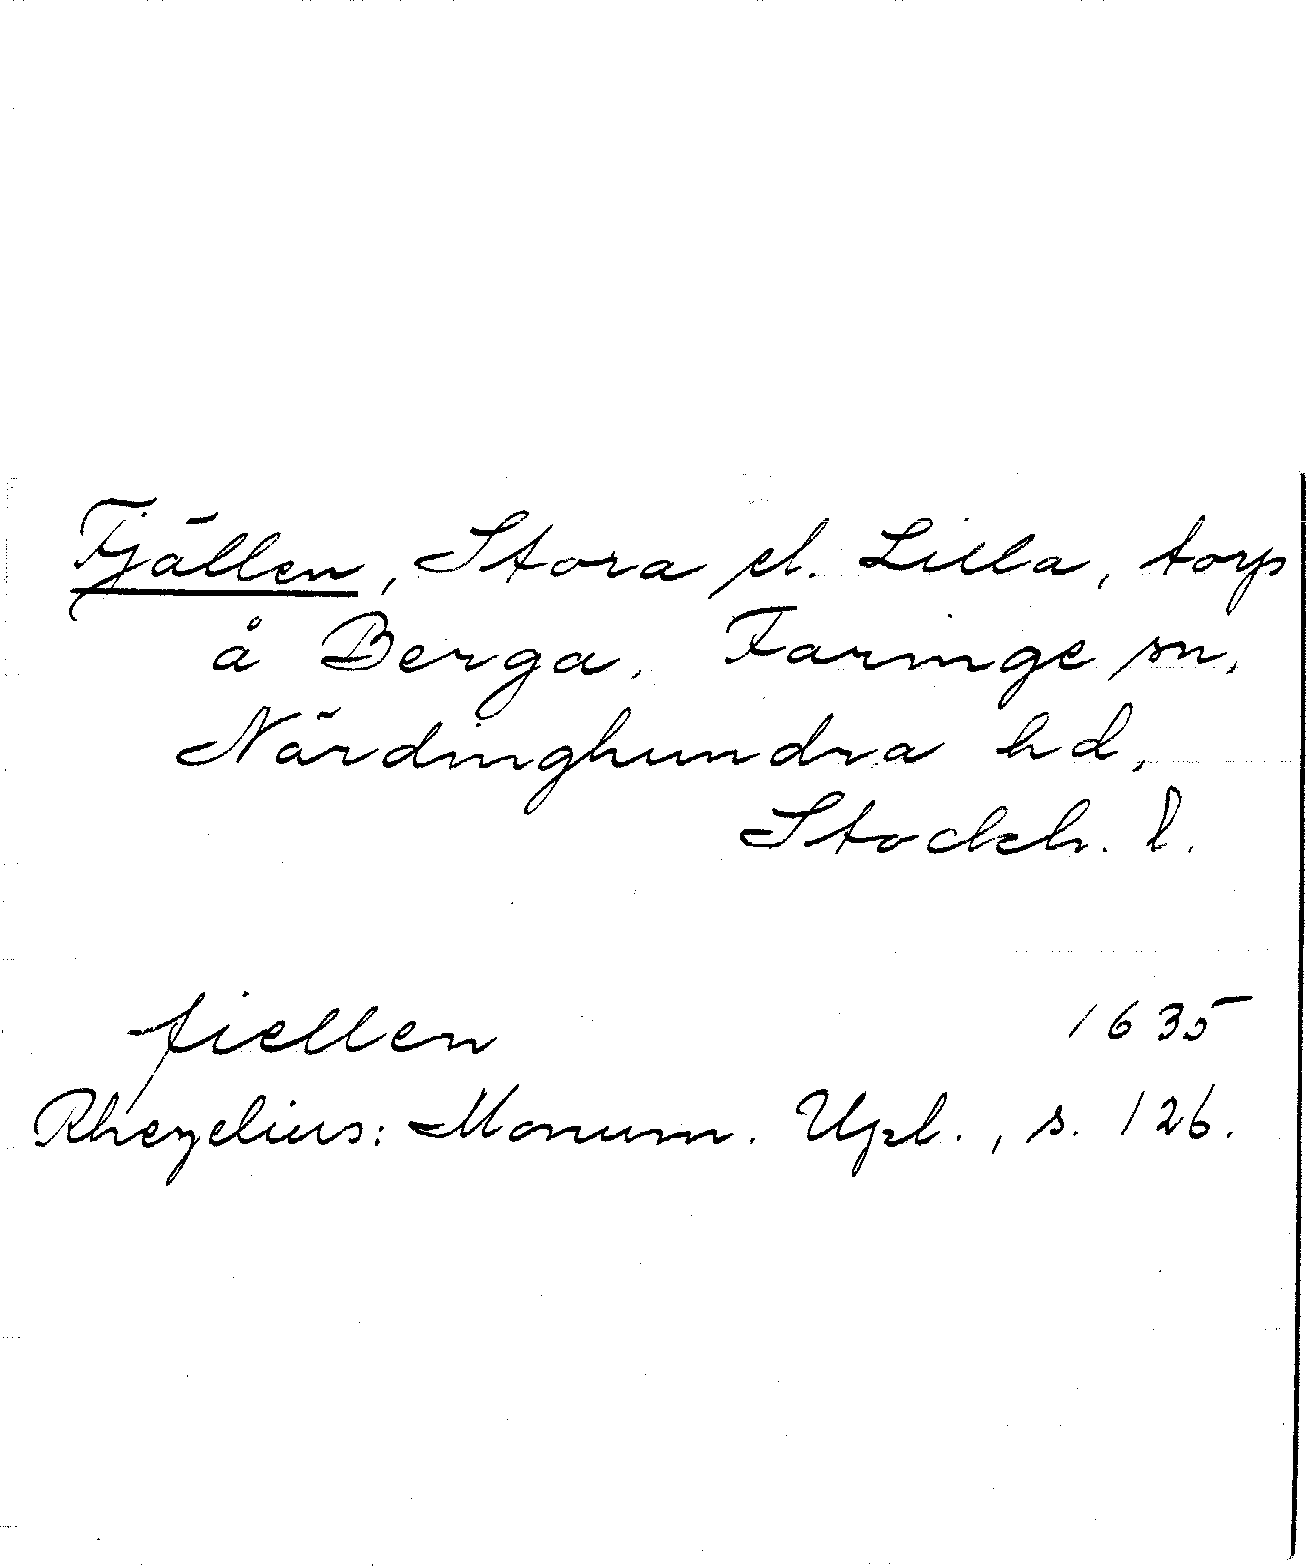 Fjällen, Stora el. Lilla, torp
å Berga. Faringe sn,
Närdinghundra hd,
Stockh. l.
fiellen 1635
Rhezelius: Monum. Upl., s. 126.